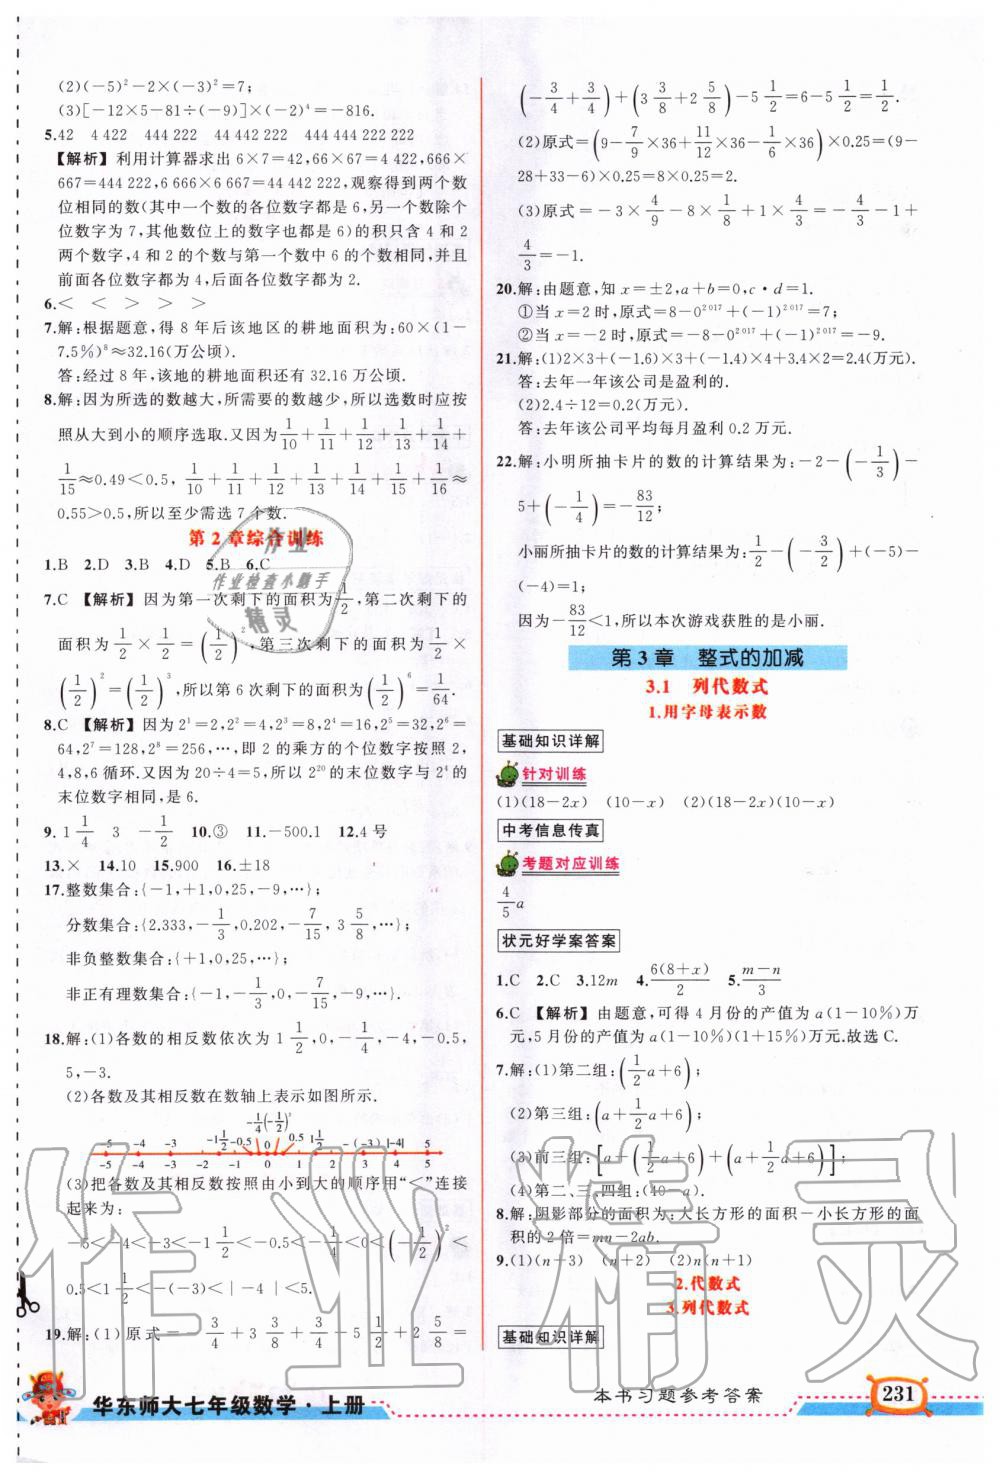 (2)(-5)²-2×(-3)²=7;
(3)[-12×5-81÷(-9)]×(-2)⁴=-816.
5.42 4 422 444 222 44 442 222 444 444 222 222
【解析】利用计算器求出 6×7=42,66×67=4 422,666×
667=444 222,6 666×6 667=44 442 222,观察得到两个数
位相同的数(其中一个数的各位数字都是 6,另一个数除个
位数字为 7,其他数位上的数字也都是 6)的积只含 4 和 2
两个数字,4 和 2 的个数与第一个数中 6 的个数相同,并且
前面各位数字都为 4,后面各位数字都为 2.
6.< < > > >
7.解:根据题意,得 8 年后该地区的耕地面积为:60×(1-
7.5%)⁸≈32.16(万公顷).
答:经过 8 年,该地的耕地面积还有 32.16 万公顷.
8.解:因为所选的数越大,所需要的数越少,所以选数时应按
照从大到小的顺序选取.又因为1/10+1/11+1/12+1/13+1/14+
1/15≈0.49<0.5,1/10+1/11+1/12+1/13+1/14+1/15+1/16≈
0.55>0.5,所以至少需选 7 个数.
第 2 章综合训练
1.B 2.D 3.B 4.D 5.B 6.C
7.C 【解析】因为第一次剩下的面积为1/2,第二次剩下的
面积为1/2×1/2=(1/2)²,第三次剩下的面积为(1/2)²×
(1/2)²=(1/2)³,所以第 6 次剩下的面积为(1/2)⁶=1/64.
8.C 【解析】因为 2¹=2,2²=4,2³=8,2⁴=16,2⁵=32,2⁶=
64,2⁷=128,2⁸=256,…,即 2 的乘方的个位数字按照 2,
4,8,6 循环.又因为 20÷4=5,所以 2²⁰的末位数字与 2⁴的
末位数字相同,是 6.
9.1 1/4 3 -1/2 10.③ 11.-500.1 12.4 号
13.× 14.10 15.900 16.±18
17.整数集合:{-1,+1,0,25,-9,…};
分数集合:{2.333,-1/3,0.202,-7/15,3 5/8,…};
非负整数集合:{+1,0,25,…};
非正有理数集合:{-1,-1/3,0,-7/15,-9,…}.
18.解:(1)各数的相反数依次为 1 1/2,0,-1/4,-4,-0.5,
5,-3.
(2)各数及其相反数在数轴上表示如图所示.
-1/4 (-1/2)²
-5 -4 -3 -1 1/2 -0.5 0 0.5 1 1/2 -(-3) |-4| 5
-5 -4 -3 -2 -1 0 1 2 3 4 5
(3)把各数及其相反数按照由小到大的顺序用“<”连接
起来为:
-5<-4<-3<-1 1/2<-0.5<-1/4<0<(-1/2)²<
0.5<1 1/2<-(-3)<|-4|<5.
19.解:(1)原式=-3/4+3 3/8+3/4-5 1/2+2 5/8=
(-3/4+3/4)+(3 3/8+2 5/8)-5 1/2=6-5 1/2=1/2.
(2)原式=(9-7/9×36+11/12×36-1/6×36)×0.25=(9-
28+33-6)×0.25=8×0.25=2.
(3)原式=-3×4/9-8×1/8+1×4/3=-4/3-1+
4/3=-1.
20.解:由题意,知 x=±2,a+b=0,c·d=1.
①当 x=2 时,原式=8-0²⁰¹⁷+(-1)²⁰¹⁷=7.
②当 x=-2 时,原式=-8-0²⁰¹⁷+(-1)²⁰¹⁷=-9.
21.解:(1)2×3+(-1.6)×3+(-1.4)×4+3.4×2=2.4(万元).
答:去年一年该公司是盈利的.
(2)2.4÷12=0.2(万元).
答:去年该公司平均每月盈利 0.2 万元.
22.解:小明所抽卡片的数的计算结果为:-2-(-1/3)-
5+(-1/4)=-83/12;
小丽所抽卡片的数的计算结果为:1/2-(-3/2)+(-5)-
(-4)=1.
因为-83/12<1,所以本次游戏获胜的是小丽.
第 3 章 整式的加减
3.1 列代数式
1.用字母表示数
基础知识详解
针对训练
(1)(18-2x) (10-x) (2)(18-2x)(10-x)
中考信息传真
考题对应训练
4/5 a
状元好学案答案
1.C 2.C 3.12m 4.6(8+x)/2 5.(m-n)/3
6.C 【解析】由题意,可得 4 月份的产值为 a(1-10%)万
元,5 月份的产值为 a(1-10%)(1+15%)万元.故选 C.
7.解:(1)第二组:(1/2 a+6);
(2)第三组:(a+1/2 a+6);
(3)前三组:[a+(1/2 a+6)+(a+1/2 a+6)];
(4)第二、三、四组:(40-a).
8.解:阴影部分的面积为:大长方形的面积-小长方形的面
积的 2 倍=mn-2ab.
9.(1)(n+3) (n+2) (2)n(n+1)
2.代数式
3.列代数式
基础知识详解
华东师大七年级数学·上册
本书习题参考答案
231
作业
作业检查小助手
精灵
作业精灵